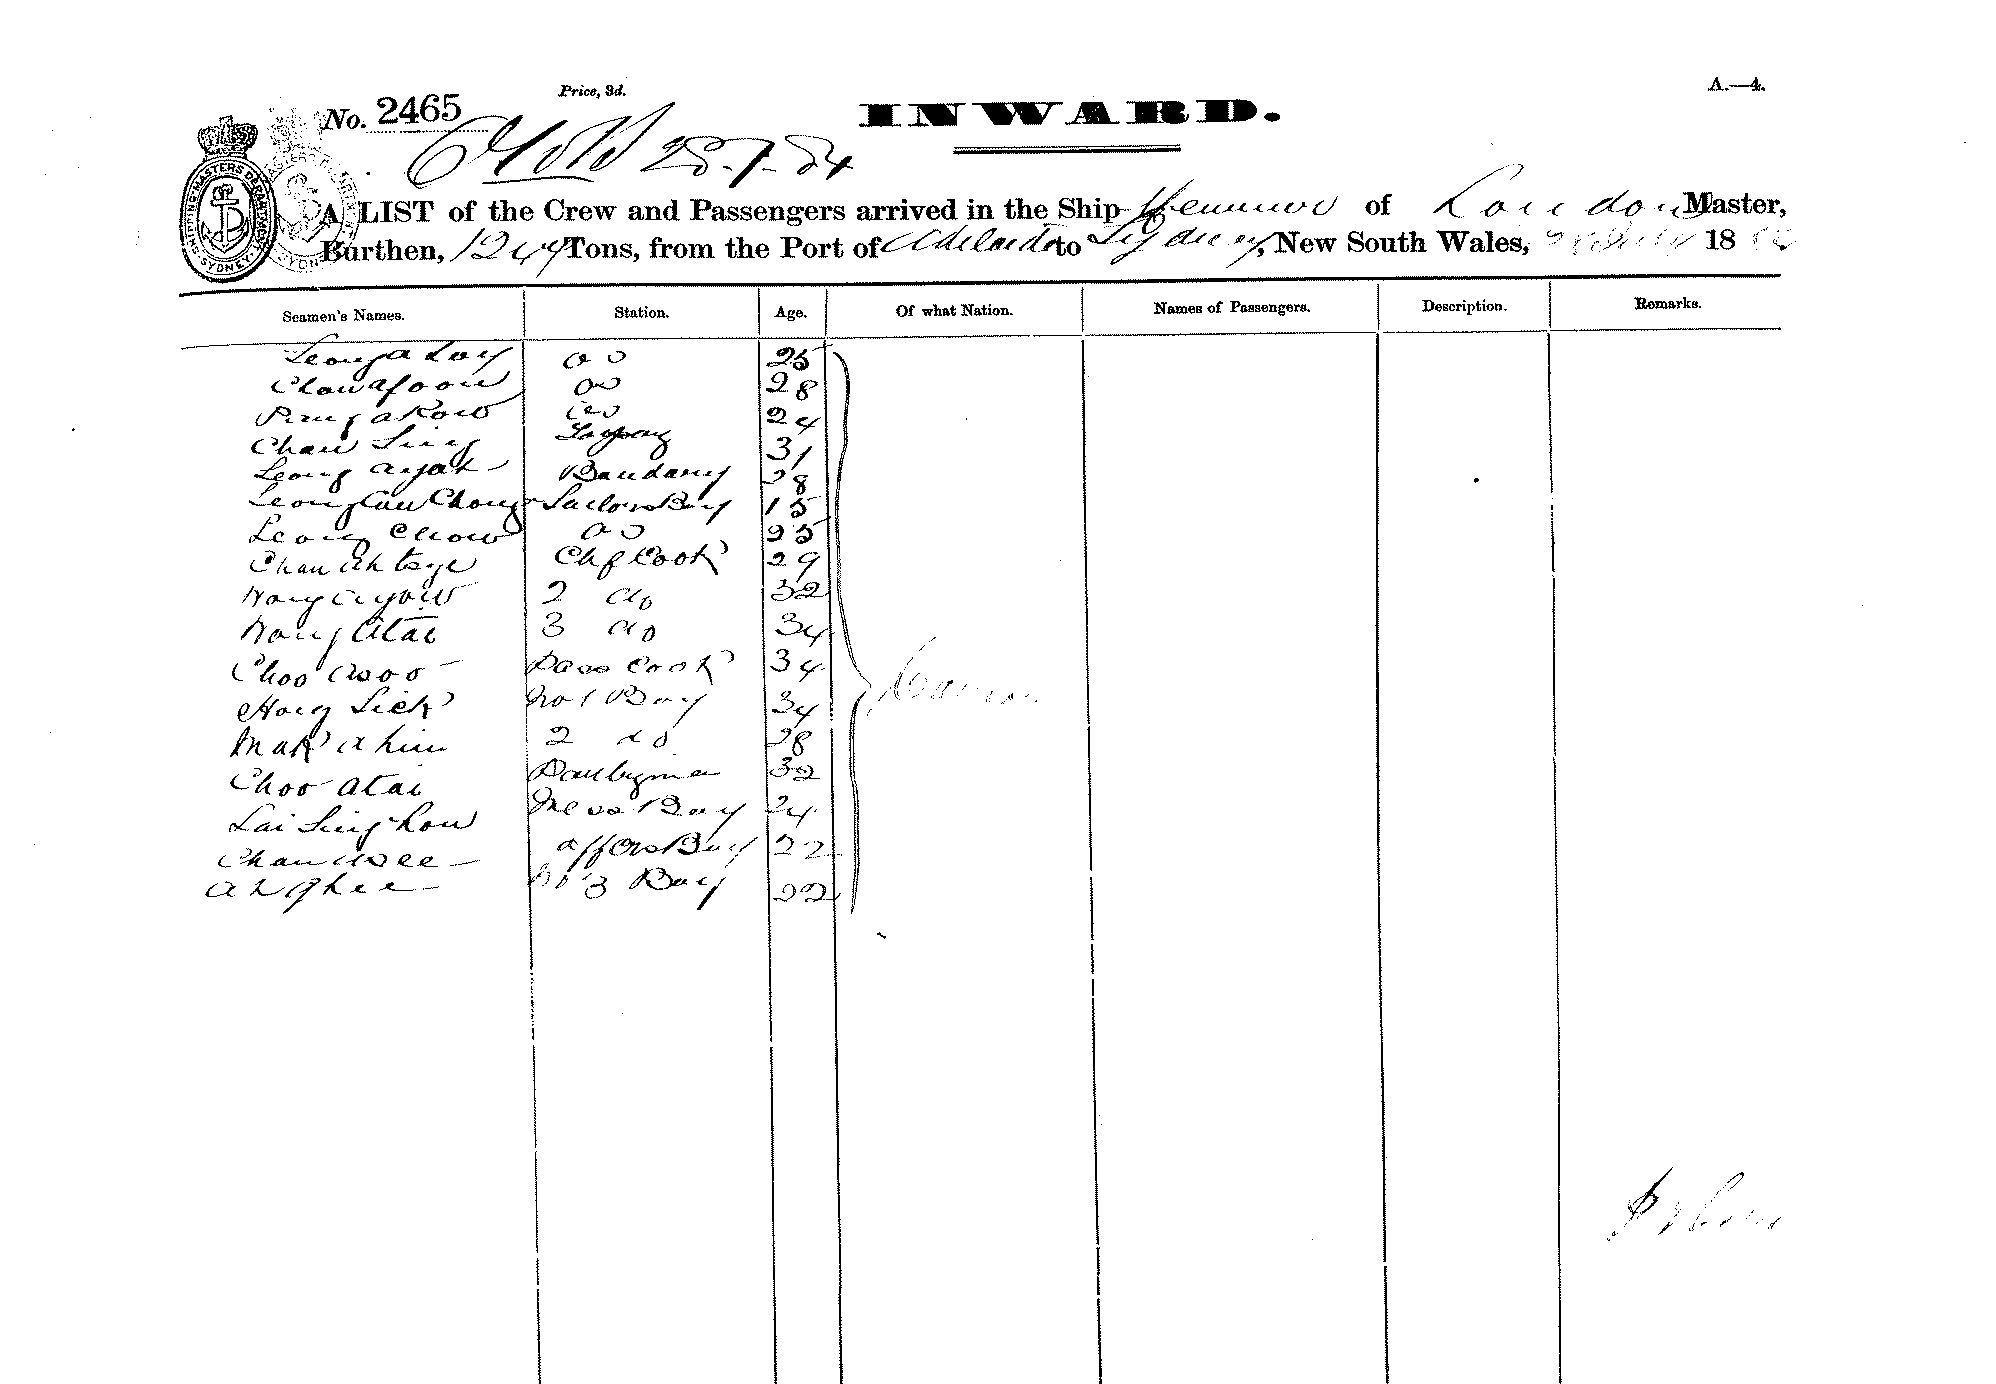 A.—4.
Price, 3d.
No. 2465
INWARD.
28.7.84
A LIST of the Crew and Passengers arrived in the Ship of London Master,
Burthen, 1249 Tons, from the Port of Adelaide to Sydney, New South Wales, July 18
SHIPPING MASTERS DEPARTMENT SYDNEY
Seamen's Names. Station. Age. Of what Nation. Names of Passengers. Description. Remarks.
Leong a Loy do 25
Chow afoon do 28
akow do 24
Chan Sing 31
Leong ayat 28
Leong Chong Sailors Boy 15
Leong Chow do 25
Chan Ah Chf Cook 29
Wong ayow 2 do 32
Wong Atai 3 do 34
Choo awoo Pass Cook 34
Hong Sick No 1 Boy 34
Mak a him 2 do 28
Choo atai Pantryman 32
Lai Sing hou Mess Boy 24
Chan awee offors Boy 22
Ah Ghee No 3 Boy 22
Canton